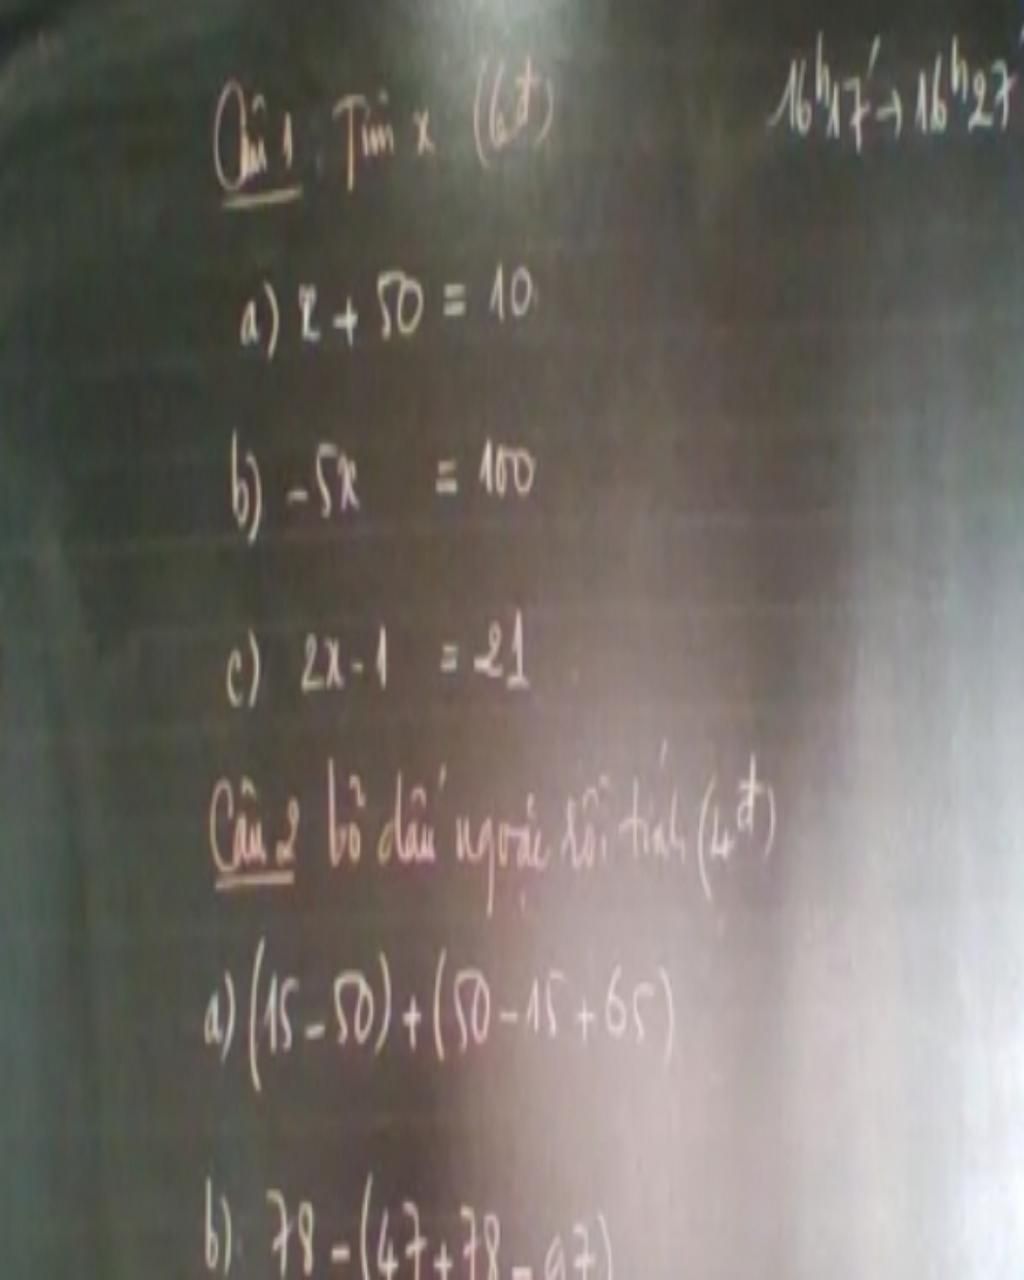 Câu 1: Tìm x (6đ)
16h17' → 16h27'
a) x + 50 = 10
b) -5x = 100
c) 2x - 1 = 21
Câu 2 bỏ dấu ngoặc rồi tính (4đ)
a) (15 - 50) + (50 - 15 + 65)
b) 78 - (47 + 78 - 97)